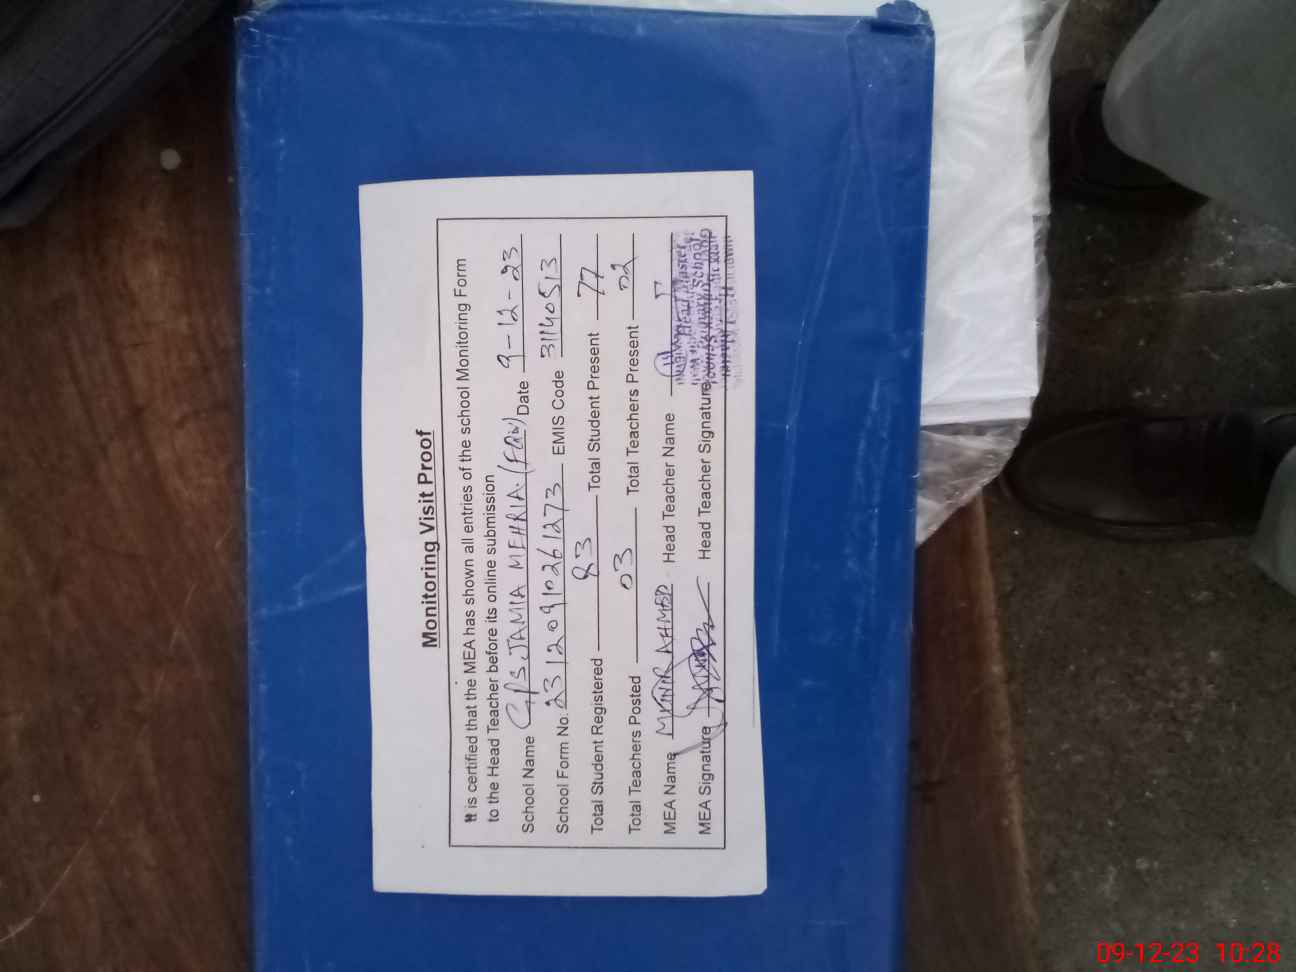 Monitoring Visit Proof
It is certified that the MEA has shown all entries of the school Monitoring Form
to the Head Teacher before its online submission
School Name GPS JAMIA MEHRIA (FaW) Date 9-12-23
School Form No. 23120910261273 EMIS Code 31140513
Total Student Registered 83 Total Student Present 77
Total Teachers Posted 03 Total Teachers Present 02
MEA Name MUNIR AHMED Head Teacher Name
MEA Signature Head Teacher Signature
Head Master
Primary School
09-12-23 10:28